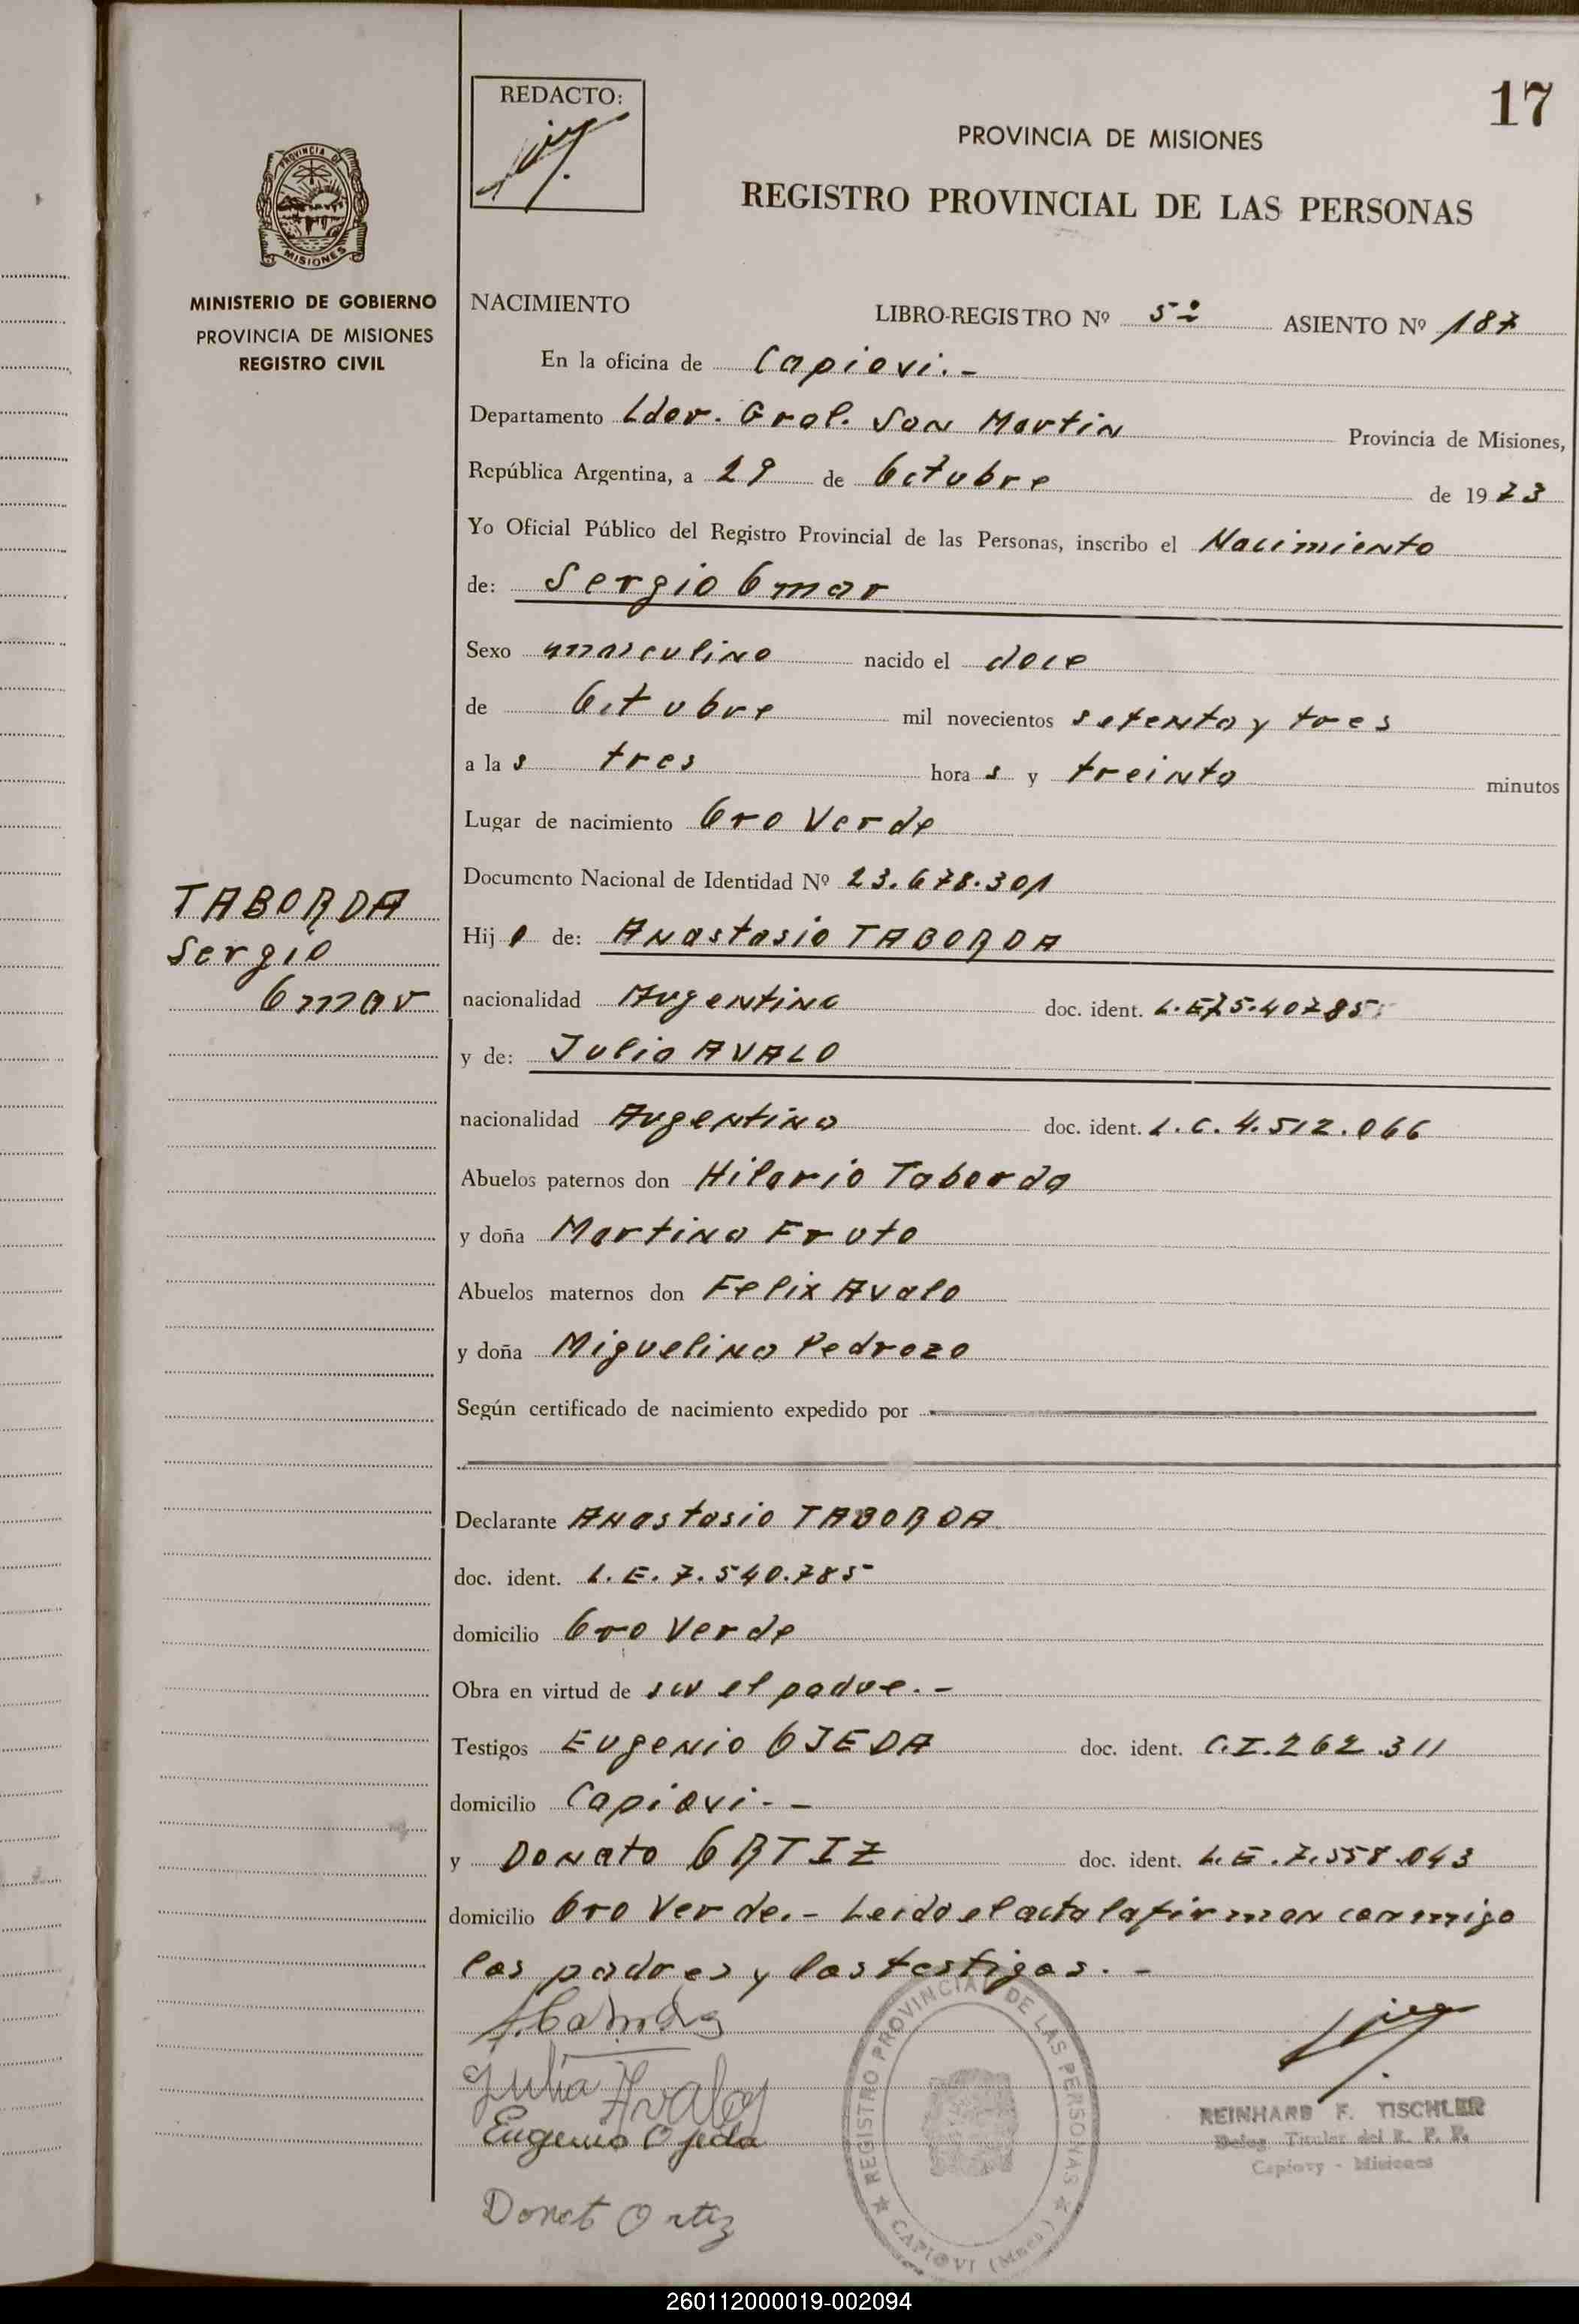 17
REDACTO:
PROVINCIA DE MISIONES
REGISTRO PROVINCIAL DE LAS PERSONAS
PROVINCIA DE
MISIONES
MINISTERIO DE GOBIERNO
PROVINCIA DE MISIONES
REGISTRO CIVIL
NACIMIENTO LIBRO-REGISTRO Nº 5º ASIENTO Nº 187
En la oficina de Capiovi.-
Departamento Lder. Gral. San Martin Provincia de Misiones,
República Argentina, a 29 de Octubre de 1973
Yo Oficial Público del Registro Provincial de las Personas, inscribo el Nacimiento
de: Sergio Omar
Sexo masculino nacido el doce
de Octubre mil novecientos setenta y tres
a las tres horas y treinta minutos
Lugar de nacimiento Oro Verde
Documento Nacional de Identidad Nº 23.678.301
TABORDA
Sergio
Omar
Hijo de: Anastasio TABORDA
nacionalidad Argentina doc. ident. L.E.
y de: Julia AVALO
nacionalidad Argentina doc. ident. L.C. 4.512.066
Abuelos paternos don Hilario Taborda
y doña Martina Fruto
Abuelos maternos don Felix Avalo
y doña Miguelina Pedrozo
Según certificado de nacimiento expedido por
Declarante Anastasio TABORDA
doc. ident. L.E. 7.540.785
domicilio Oro Verde
Obra en virtud de ser el padre.-
Testigos Eugenio OJEDA doc. ident. C.I. 262.311
domicilio Capiovi.-
y Donato ORTIZ doc. ident. L.E. 7.558.043
domicilio Oro Verde.- Leida el acta la firman conmigo
los padres y los testigos.-
Julia Avalo
Eugenio Ojeda
Donat Ortiz
REGISTRO PROVINCIAL DE LAS PERSONAS
CAPIOVI (Mnes)
REINHARD F. TISCHLER
Deleg. Titular del R. P. P.
Capiovy - Misiones
260112000019-002094